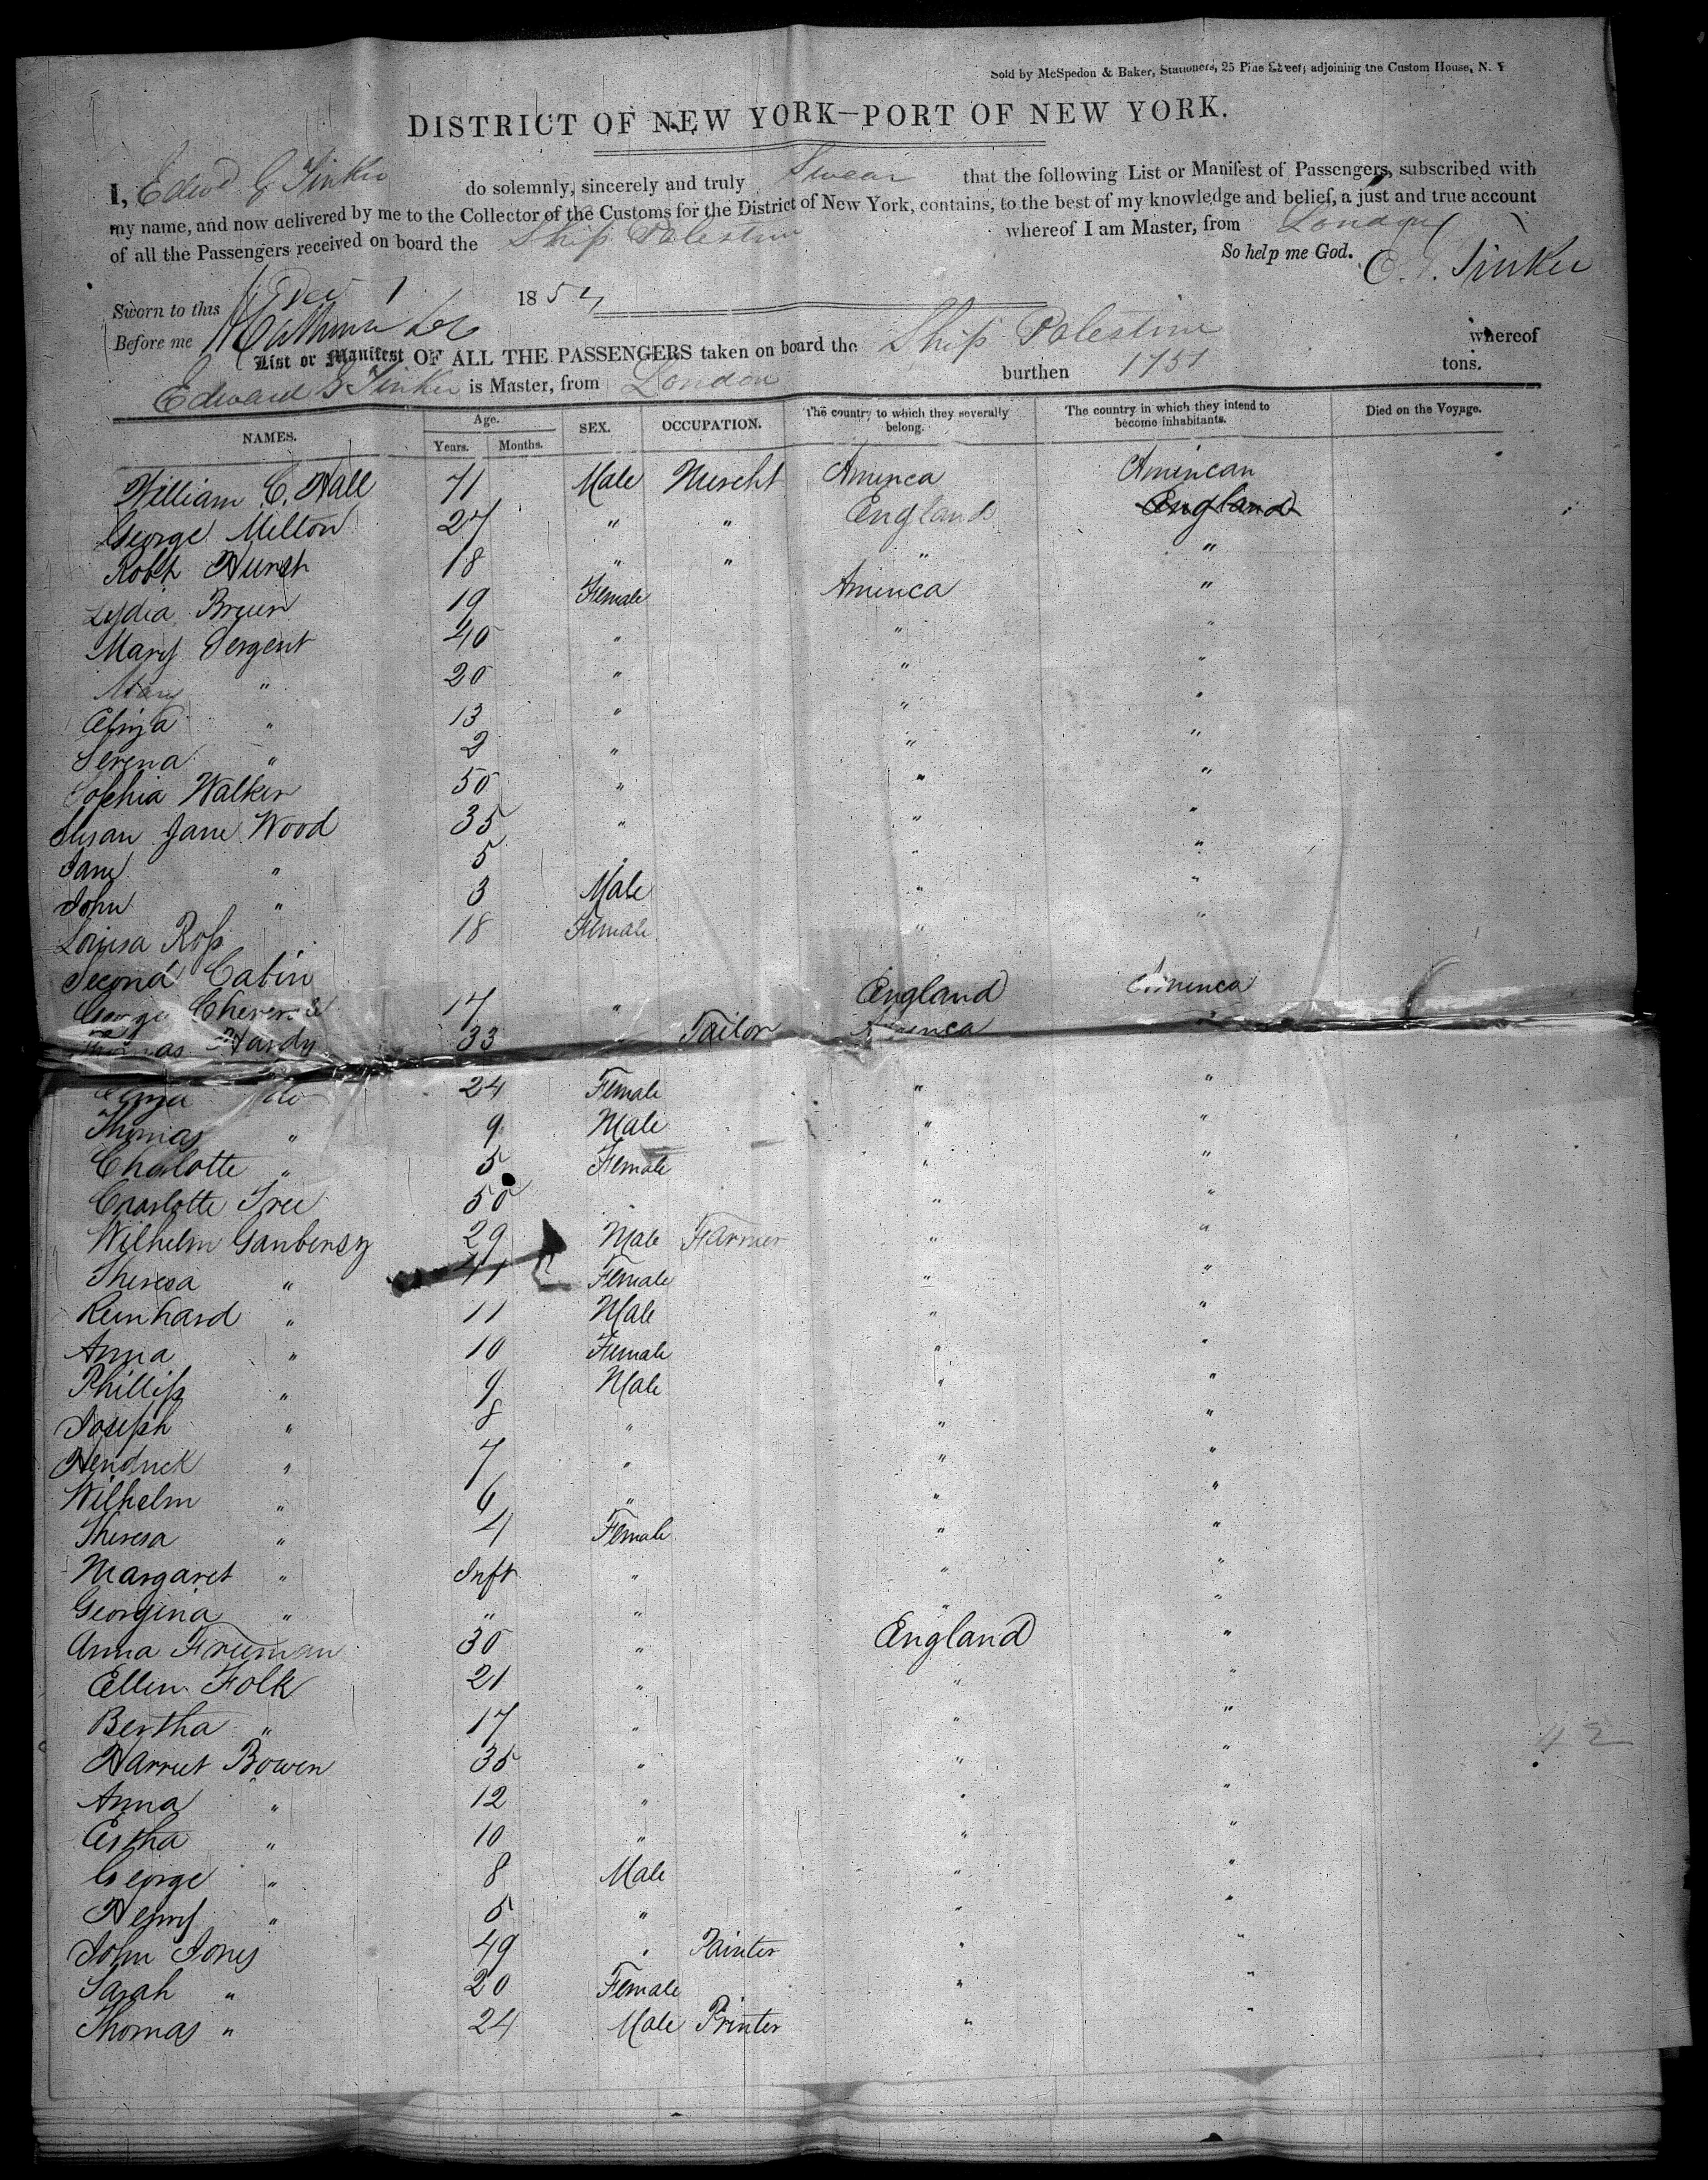 Sold by McSpedon & Baker, Stationers, 25 Pine Street, adjoining the Custom House, N. Y
DISTRICT OF NEW YORK—PORT OF NEW YORK.
I, Edwd G Tinker do solemnly, sincerely and truly Swear that the following List or Manifest of Passengers, subscribed with
my name, and now delivered by me to the Collector of the Customs for the District of New York, contains, to the best of my knowledge and belief, a just and true account
of all the Passengers received on board the Ship Palestine whereof I am Master, from London
So help me God. E. G. Tinker
Sworn to this Dec 1 1854
Before me
List or Manifest OF ALL THE PASSENGERS taken on board the Ship Palestine whereof
Edward G Tinker is Master, from London burthen 1751 tons.
NAMES. Age. Years. Months. SEX. OCCUPATION. The country to which they severally belong. The country in which they intend to become inhabitants. Died on the Voyage.
William C. Hall 41 Male Mercht America American
George Milton 27 " " England England
Robt Hurst 18 " " " "
Lydia Breen 19 Female America "
Mary Sergent 40 " " "
Mary " 20 " " "
Eliza " 13 " " "
Serena " 2 " " "
Sophia Walker 50 " " "
Susan Jane Wood 35 " " "
Jane " 5 " " "
John " 3 Male " "
Louisa Ross 18 Female " "
Second Cabin
George 17 " England America
Thomas Hardy 33 " Tailor America "
Eliza do 24 Female " "
Thomas " 9 Male " "
Charlotte " 5 Female " "
Charlotte Tree 50 " " "
Wilhelm Gambensy 29 Male Farmer " "
Theresa " 41 Female " "
Reinhard " 11 Male " "
Anna " 10 Female " "
Phillip " 9 Male " "
Joseph " 8 " " "
Hendrick " 7 " " "
Wilhelm " 6 " " "
Theresa " 4 Female " "
Margaret " Inft " " "
Georgina " " " " "
Anna Freeman 30 " England "
Ellen Folk 21 " " "
Bertha " 17 " " "
Harriet Bowen 35 " " "
Anna " 12 " " "
Estha " 10 " " "
George " 8 Male " "
Henry " 5 " " "
John Jones 49 " Painter " "
Sarah " 20 Female " "
Thomas " 24 Male Printer " "
42